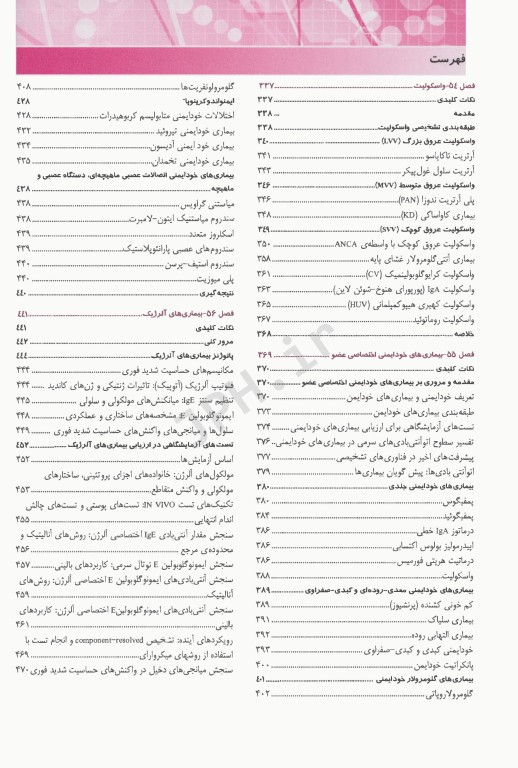 فهرست
فصل ۵۴-واسکولیت ۳۳۷
نکات کلیدی ۳۳۷
مقدمه ۳۳۸
طبقه‌بندی تشخیصی واسکولیت ۳۳۸
واسکولیت عروق بزرگ (LVV) ۳۴۰
آرتریت تاکایاسو ۳۴۱
آرتریت سلول غول‌پیکر ۳۴۳
واسکولیت عروق متوسط (MVV) ۳۴۶
پلی آرتریت ندوزا (PAN) ۳۴۶
بیماری کاواساکی (KD) ۳۴۸
واسکولیت عروق کوچک (SVV) ۳۴۹
واسکولیت عروق کوچک با واسطه‌ی ANCA ۳۵۰
بیماری آنتی‌گلومرولار غشای پایه ۳۵۸
واسکولیت کرایوگلوبولینمیک (CV) ۳۶۱
واسکولیت IgA (پورپورای هنوخ-شوئن لاین) ۳۶۳
واسکولیت کهیری هیپوکمپلمانی (HUV) ۳۶۵
واسکولیت روماتوئید ۳۶۷
خلاصه ۳۶۸
فصل ۵۵-بیماری‌های خودایمنی اختصاصی عضو ۳۶۹
نکات کلیدی ۳۷۰
مقدمه و مروری بر بیماری‌های خودایمنی اختصاصی عضو ۳۷۰
تعریف خودایمنی و بیماری‌های خودایمن ۳۷۰
طبقه‌بندی بیماری‌های خودایمن ۳۷۳
تست‌های آزمایشگاهی برای ارزیابی بیماری‌های خودایمنی ۳۷۴
تفسیر سطوح اتوآنتی‌بادی‌های سرمی در بیماری‌های خودایمنی ۳۷۶
پیشرفت‌های اخیر در فناوری‌های تشخیصی ۳۷۷
اتوآنتی بادی‌ها: پیش گویان بیماری‌ها ۳۷۹
بیماری‌های خودایمنی جلدی ۳۸۰
پمفیگوس ۳۸۰
پمفیگوئید ۳۸۴
درماتوز IgA خطی ۳۸۶
اپیدرمولیز بولوس اکتسابی ۳۸۶
درماتیت هرپتی فورمیس ۳۸۶
واسکولیت ۳۸۸
بیماری‌های خودایمنی معدی-روده‌ای و کبدی-صفراوی ۳۸۹
کم خونی کشنده (پرنشیوز) ۳۸۹
بیماری سلیاک ۳۹۱
بیماری التهابی روده ۳۹۲
خودایمنی کبدی و کبدی-صفراوی ۳۹۳
پانکراتیت خودایمن ۴۰۰
بیماری‌های گلومرولار خودایمنی ۴۰۱
گلومرولاروپاتی ۴۰۲
گلومرولونفریت‌ها ۴۰۸
ایمنواندوکرینوپا- ۴۲۸
اختلالات خودایمنی متابولیسم کربوهیدرات ۴۲۸
بیماری خودایمنی تیروئید ۴۳۲
بیماری خود ایمنی آدیسون ۴۳۴
بیماری خودایمنی تخمدان ۴۳۵
بیماری‌های خودایمنی اتصالات عصبی ماهیچه‌ای، دستگاه عصبی و
ماهیچه ۴۳۸
میاستنی گراویس ۴۳۸
سندروم میاستنیک ایتون-لامبرت ۴۳۸
اسکلروز متعدد ۴۳۹
سندروم‌های عصبی پارانئوپلاستیک ۴۳۹
سندروم استیف-پرسن ۴۴۰
پلی میوزیت ۴۴۰
نتیجه گیری ۴۴۰
فصل ۵۶-بیماری‌های آلرژیک ۴۴۱
نکات کلیدی ۴۴۱
مرور کلی ۴۴۲
پاتوژنز بیماری‌های آلرژیک ۴۴۴
مکانیسم‌های حساسیت شدید فوری ۴۴۴
فنوتیپ آلرژیک (آتوپیک): تاثیرات ژنتیکی و ژن‌های کاندید ۴۴۴
تنظیم سنتز IgE: میانکنش‌های مولکولی و سلولی ۴۴۵
ایمونوگلوبولین E: مشخصه‌های ساختاری و عملکردی ۴۴۸
سلول‌ها و میانجی‌های واکنش‌های حساسیت شدید فوری ۴۴۹
تست های آزمایشگاهی در ارزیابی بیماری‌های آلرژیک ۴۵۲
اساس آزمایش‌ها ۴۵۲
مولکول‌های آلرژن: خانواده‌های اجزای پروتئینی، ساختارهای
مولکولی و واکنش متقاطع ۴۵۳
تکنیک‌های تست IN VIVO: تست‌های پوستی و تست‌های چالش
اندام انتهایی ۴۵۵
سنجش مقدار آنتی‌بادی IgE اختصاصی آلرژن: روش‌های آنالیتیک و
محدوده‌ی مرجع ۴۵۶
سنجش ایمونوگلوبولین E توتال سرمی: کاربردهای بالینی ۴۵۷
سنجش آنتی‌بادی‌های ایمونوگلوبولین E اختصاصی آلرژن: روش‌های
آنالیتیک ۴۵۹
سنجش آنتی‌بادی‌های ایمونوگلوبولینE اختصاصی آلرژن: کاربردهای
بالینی ۴۶۱
رویکردهای آینده: تشخیص component-resolved و انجام تست با
استفاده از روشهای میکروارای ۴۶۹
سنجش میانجی‌های دخیل در واکنش‌های حساسیت شدید فوری ۴۷۰